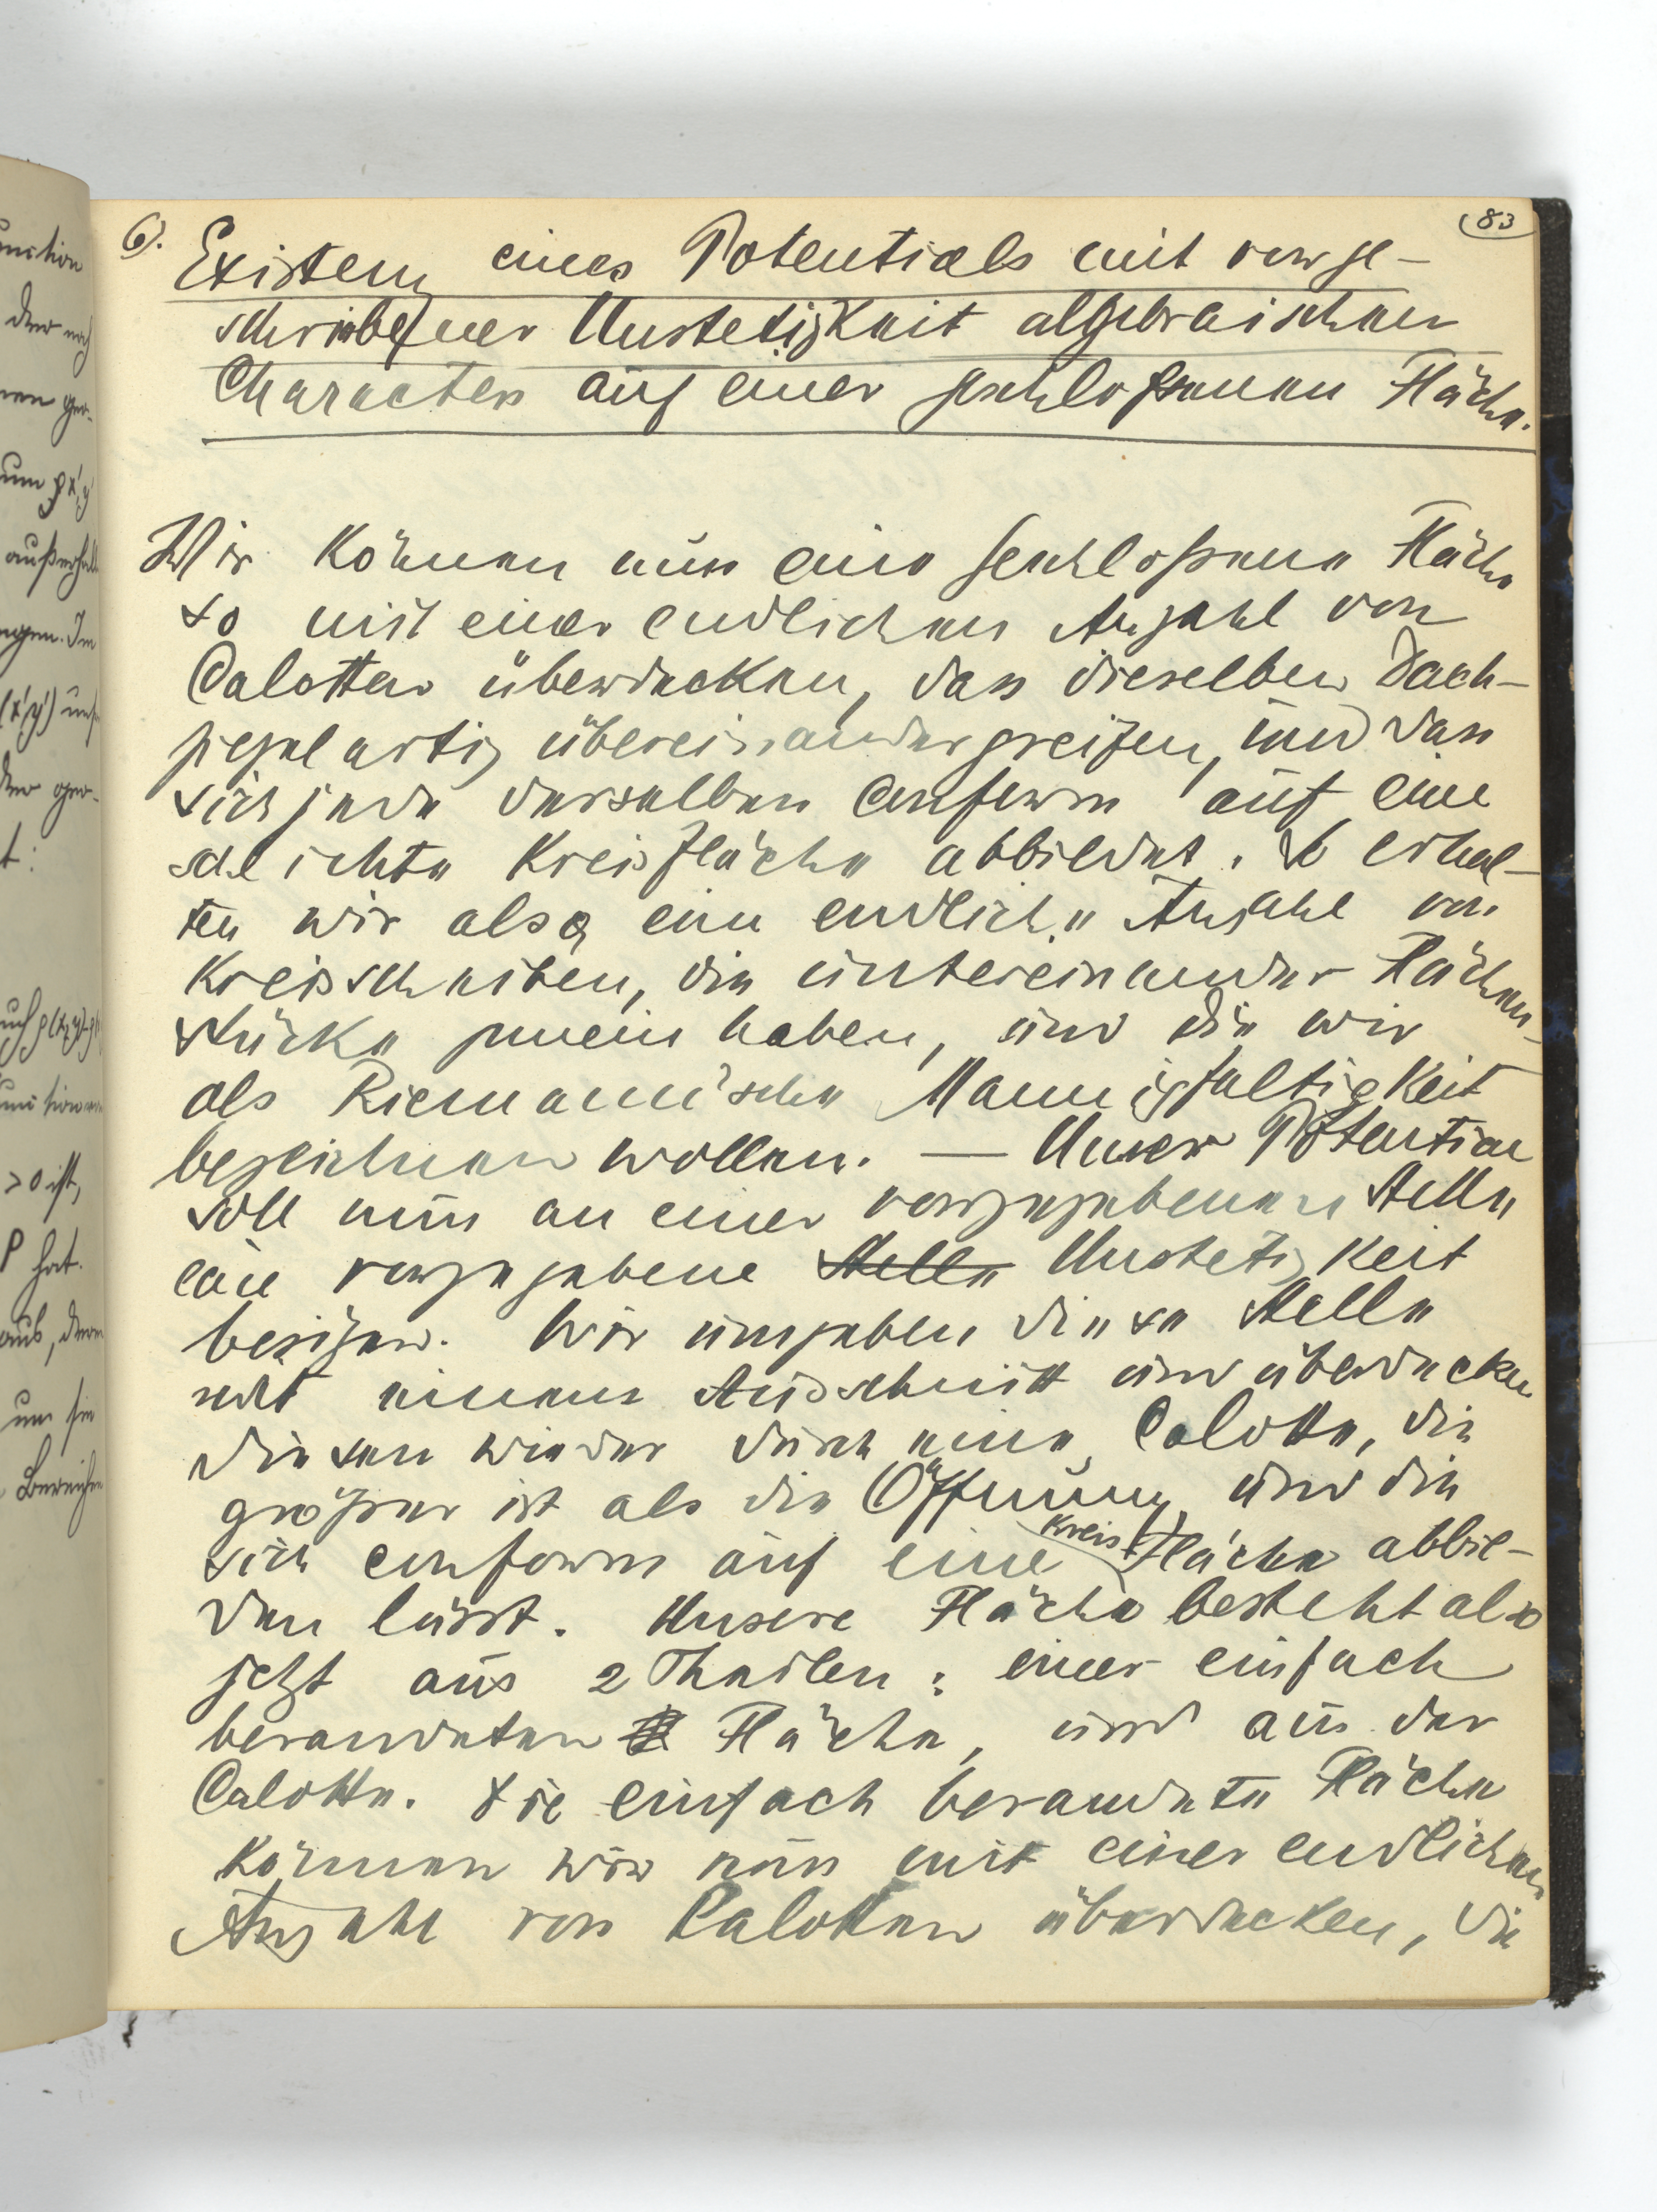 83
6). Existenz eines Potentials mit vorge-
schriebener Unstetigkeit algebraischen
Characters auf einer geschloßenen Fläche.
Wir können nun eine geschloßene Fläche
so mit einer endlichen Anzahl von
Calotten überdecken, dass dieselben Dach-
ziegelartig übereinandergreifen, und dass
sich jede derselben conform auf eine
schlichte Kreisfläche abbildet. So erhal-
ten wir also eine endliche Anzahl von
Kreisscheiben, die untereinander Flächen-
stücke gemein haben, und die wir
als Riemann'sche Mannigfaltigkeit
bezeichnen wollen. — Unser Potential
soll nun an einer vorgegebenen Stelle
eine vorgegebene Stelle Unstetigkeit
besitzen. Wir umgeben diese Stelle
mit einem Ausschnitt und überdecken
diesen wieder durch eine Calotte, die
größer ist als die Öffnung und die
sich conform auf eine Kreisfläche abbil-
den lässt. Unsere Fläche besteht also
jetzt aus 2 Theilen: einer einfach
berandeten Fläche, und aus der
Calotte. Die einfach berandete Fläche
können wir nun mit einer endlichen
Anzahl von Calotten überdecken, die
unction
der noch
nen ger-
um
außerhalb
ngen. Im
(x'y')
der ger-
t:
>0 ist,
P hat.
aus, deren
um sie